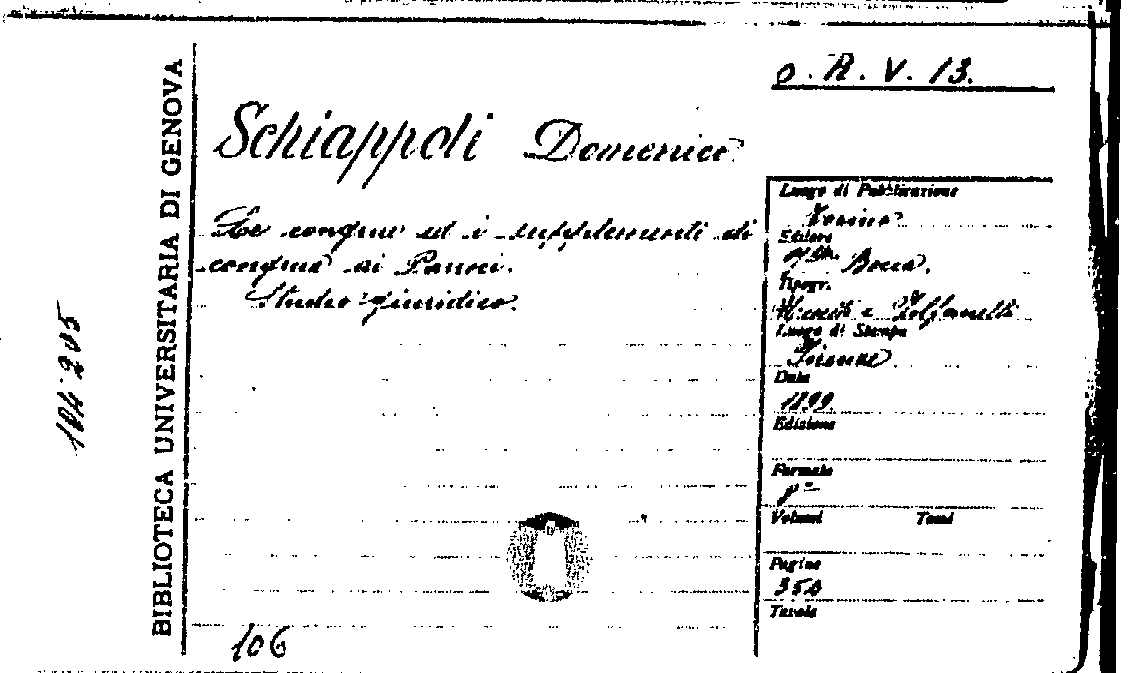 o. R. V. 13.
BIBLIOTECA UNIVERSITARIA DI GENOVA
104205
Schiappoli Domenico
Le congrue ed i supplementi di
congrua ai Parroci.
Studio giuridico.
Luogo di Pubblicazione
Torino
Editore
Bocca.
Tipogr.
Luogo di Stampa
Firenze
Data
1899
Edizione
Formato
8º
Volumi Tomi
Pagine
350
Tavole
106